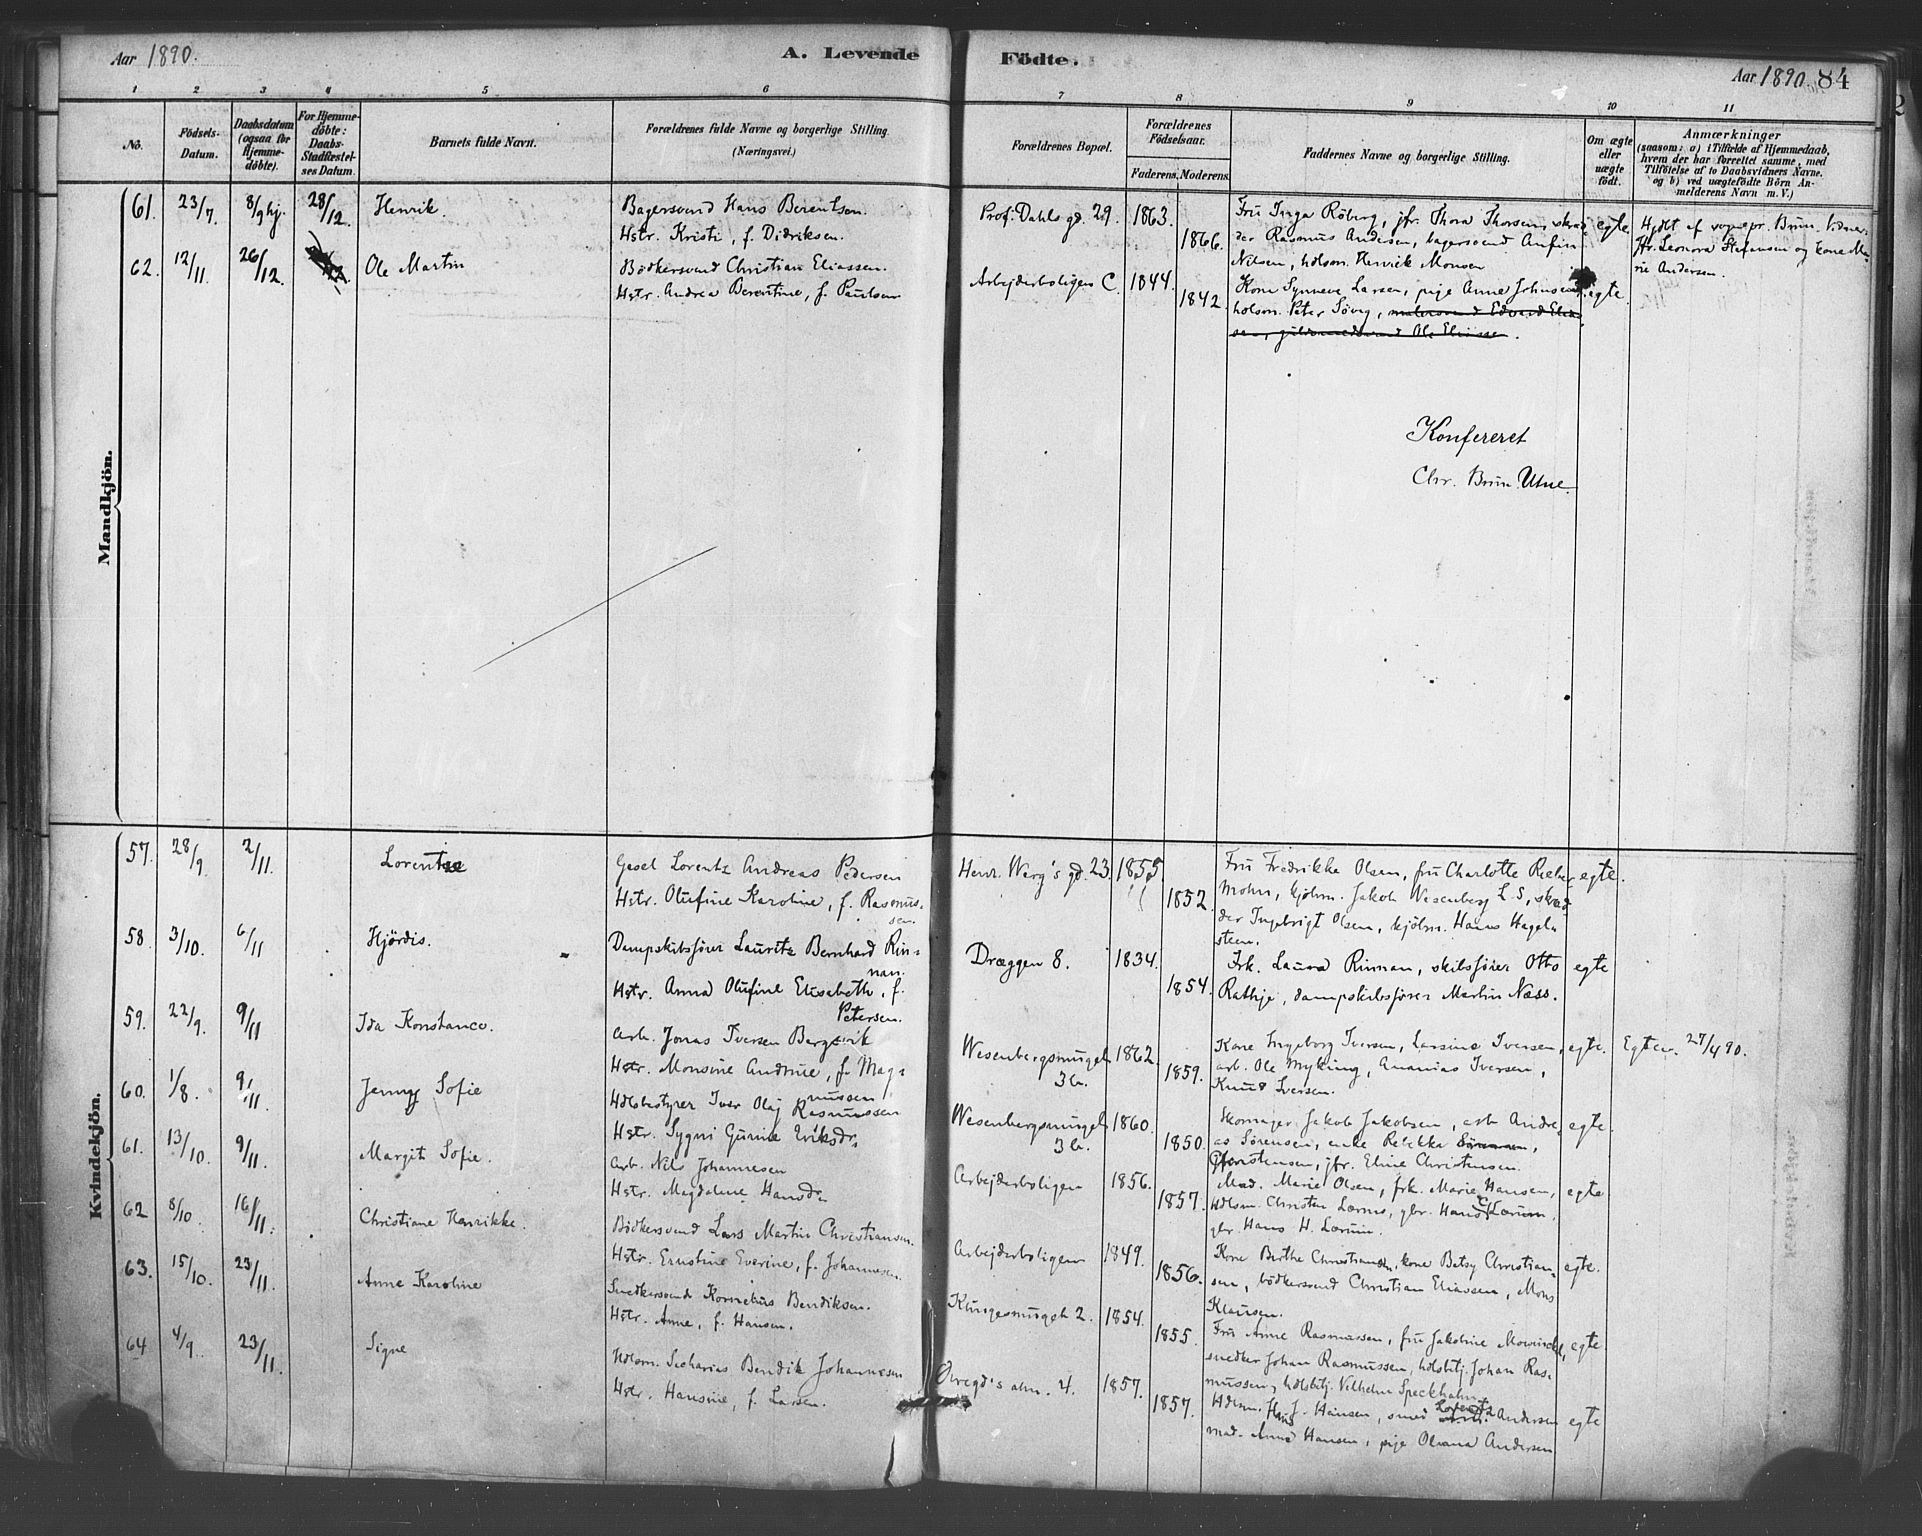 Aar 1890.
A. Levende
Födte.
Aar 1890. 84
1 2 3 4 5 6 7 8 9 10 11
No.
Födsels-
Datum.
Daabsdatum
(ogsaa for
Hjemme-
döbte).
For Hjemme-
döbte:
Daabs-
Stadfæstel-
ses Datum.
Barnets fulde Navn.
Forældrenes fulde Navne og borgerlige Stilling.
(Næringsvei.)
Forældrenes Bopæl.
Forældrenes
Födselsaar.
Faderens. Moderens.
Faddernes Navne og borgerlige Stilling.
Om ægte
eller
uægte
födt.
Anmærkninger
(saasom: a) i Tilfælde af Hjemmedaab,
hvem der har forrettet samme, med
Tilföielse af to Daabsvidners Navne.
og b) ved uægtefödte Börn An-
melderens Navn m. V.)
Mandkjön.
61. 23/7. 8/9 hj. 28/12. Henrik.
Bagersvend Hans Berentsen.
Hstr. Kristi, f. Didriksen.
Prof. Dahls gd. 29. 1863.
1866.
Fru Inga Röberg, jfr. Thora Thorsen, skræd-
der Rasmus Andersen, bagersvend Anfin
Nilsen, hdlsm. Henrik Monsen
egte.
Hjdbt af sognepr. Brun. Vidner:
Fr. Leonora Stefensen og kone Ma-
rie Andersen.
62. 12/11. 26/12. Ole Martin
Bödkersvend Christian Eliassen.
Hstr. Andrea Berentine, f. Paulsen
Arbejderboligen C. 1844.
1842.
Kone Synneve Larsen, pige Anne Johnsen,
hdlsm. Peter Söveg, malersvend Edvard Elias-
sen, guldsmedsvend Ole Eliassen.
egte.
Konfereret
Chr. Brun. Utne.
Kvindekjön.
57. 28/9. 2/11. Lorentze
Gesel Lorentz Andreas Pedersen
Hstr. Olufine Karoline, f. Rasmus-
sen.
Henr. Werg's gd. 23. 1855.
1852.
Fru Fredrikke Olsen, fru Charlotte Rieber
Mohn, kjöbm. Jakob Wesenberg L. S., skræd-
der Ingebrigt Olsen, kjöbm. Hans Hagel-
steen.
egte.
58. 3/10. 6/11 Hjördis.
Dampskibsförer Lauritz Bernhard Rin-
nan.
Hstr. Anna Olufine Elisabeth, f.
Petersen.
Dræggen 8. 1834.
1854.
Frk. Laura Rinnan, skibsförer Otto
Rathje, dampskibsförer Martin Næss.
egte
59. 22/9. 9/11 Ida Konstance.
Arb. Jonas Iversen Bergevik
Hstr. Monsine Andrine, f. Mag-
nussen
Wesenbergsmuget 3b. 1862.
1859.
Kone Ingeborg Iversen, Larsine Iversen,
arb. Ole Myking, Ananias Iversen,
Knud Iversen.
egte.
Egtev. 27/4 90.
60. 1/8. 9/11. Jenny Sofie
Hdlsbestyrer Iver Olaj Rasmussen
Hstr. Sygni Gurine Eriksdr.
Wesenbergsmuget 3b. 1860.
1850.
Skomager Jakob Jakobsen, arb Andre-
as Sörensen, enke Rebekka
Christensen, jfr. Eline Christensen.
egte.
61. 13/10. 9/11. Margit Sofie.
Arb. Nils Johannesen
Hstr. Magdalene Hansdr
Arbejderboligen 1856.
1857.
Mad. Marie Olsen, frk. Marie Hansen,
Hdlsm. Christen Lærus, gbr. Hans C. Lærum,
gbr. Hans H. Lærum.
egte
62 8/10. 16/11. Christiane Henrikke.
Bödkersvend Lars Martin Christiansen.
Hstr. Ernstine Everine, f. Johannesen.
Arbejderboligen 1849.
1856.
Kone Birthe Christiansen, kone Betsy Christian-
sen, bödkersvend Christian Eliassen, Mons
Klausen.
egte.
63. 15/10. 23/11. Anne Karoline
Snedkersvend Kornelius Bendiksen.
Hstr. Anne, f. Hansen.
Klingesmuget 2. 1854.
1855.
Fru Anne Rasmussen, fru Jakobine Mowinckel,
snedker Johan Rasmussen, hdlsbtj. Johan Ras-
mussen, hdlsbtj. Vilhelm Speckhahn
egte.
64 4/9. 23/11. Signe
Hdlsm. Sacharias Bendik Johannesen
Hstr. Hansine, f. Larsen.
Øvregd's alm. 4. 1857.
1857.
Hdlsm. Hans J. Hansen, smed Lorentz Andersen
mad. Anna Hansen, pige Oleana Andersen
egte